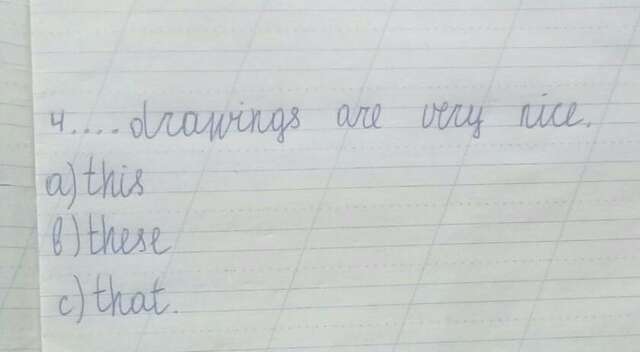 4....drawings are very nice.
a) this
b) these
c) that.